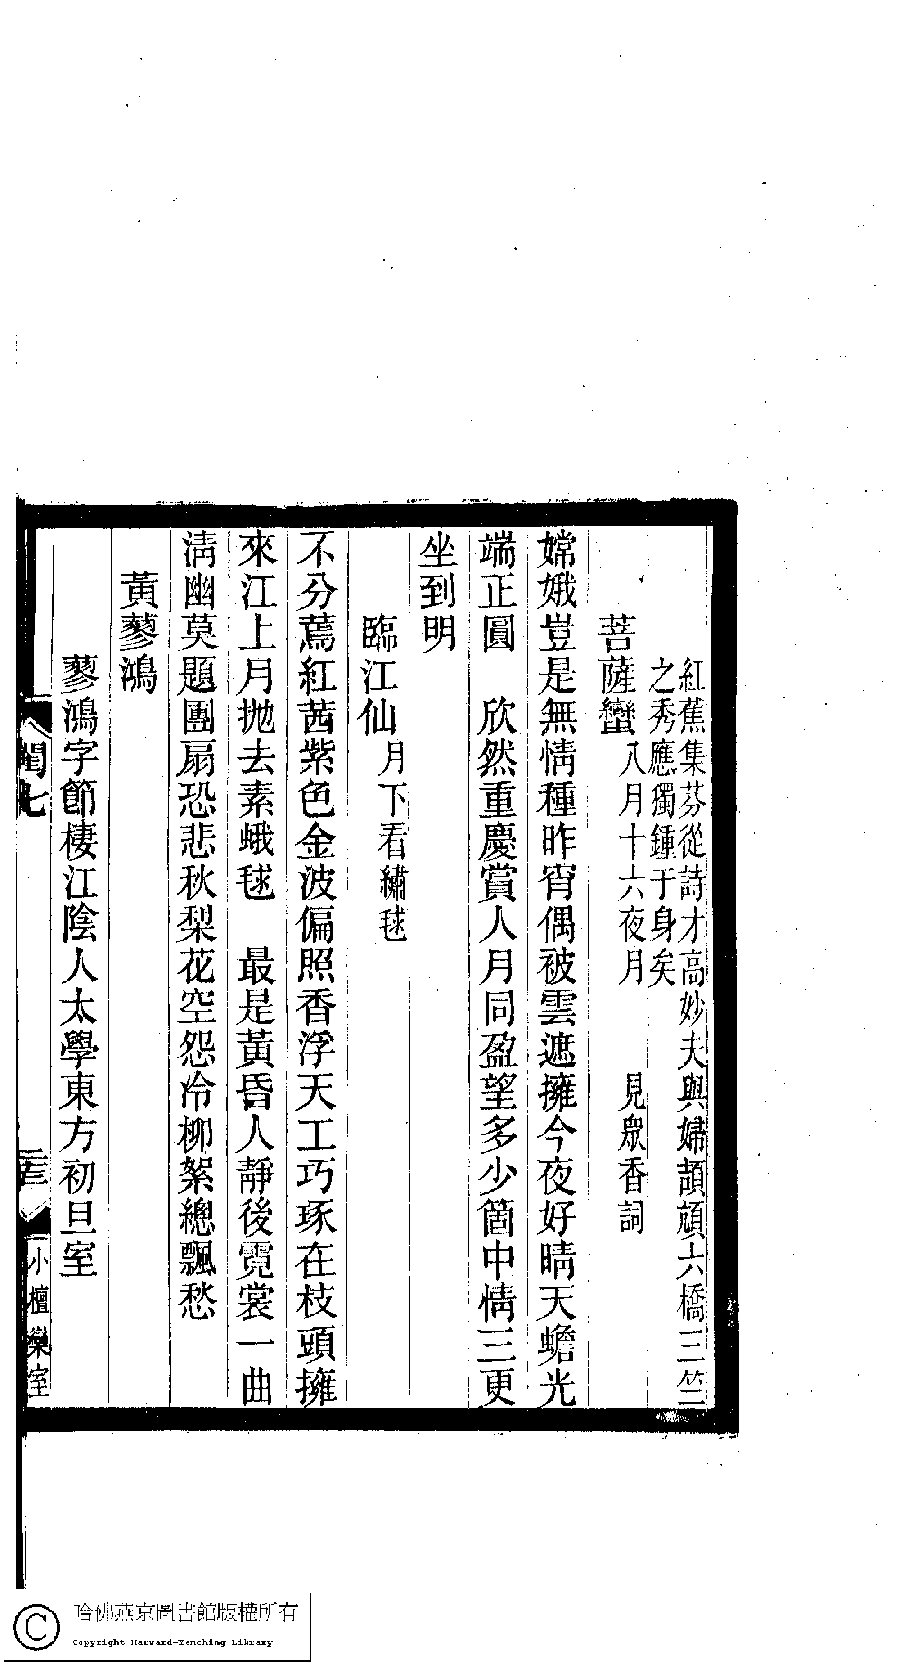 紅蕉集芬從詩才高妙夫與婦頡頏六橋三竺
之秀應獨鍾于身矣
菩薩蠻八月十六夜月　見眾香詞
嫦娥豈是無情種昨宵偶被雲遮擁今夜好晴天蟾光
端正圓　欣然重慶賞人月同盈望多少箇中情三更
坐到明
臨江仙月下看繡毬
不分蔫紅茜紫色金波偏照香浮天工巧琢在枝頭擁
來江上月拋去素蛾毬　最是黃昏人靜後霓裳一曲
清幽莫題團扇恐悲秋梨花空怨冷柳絮總飄愁
黃蓼鴻
蓼鴻字節棲江陰人太學東方初旦室
閨七
小檀欒室
哈佛燕京圖書館版權所有
Copyright Harvard-Yenching Library